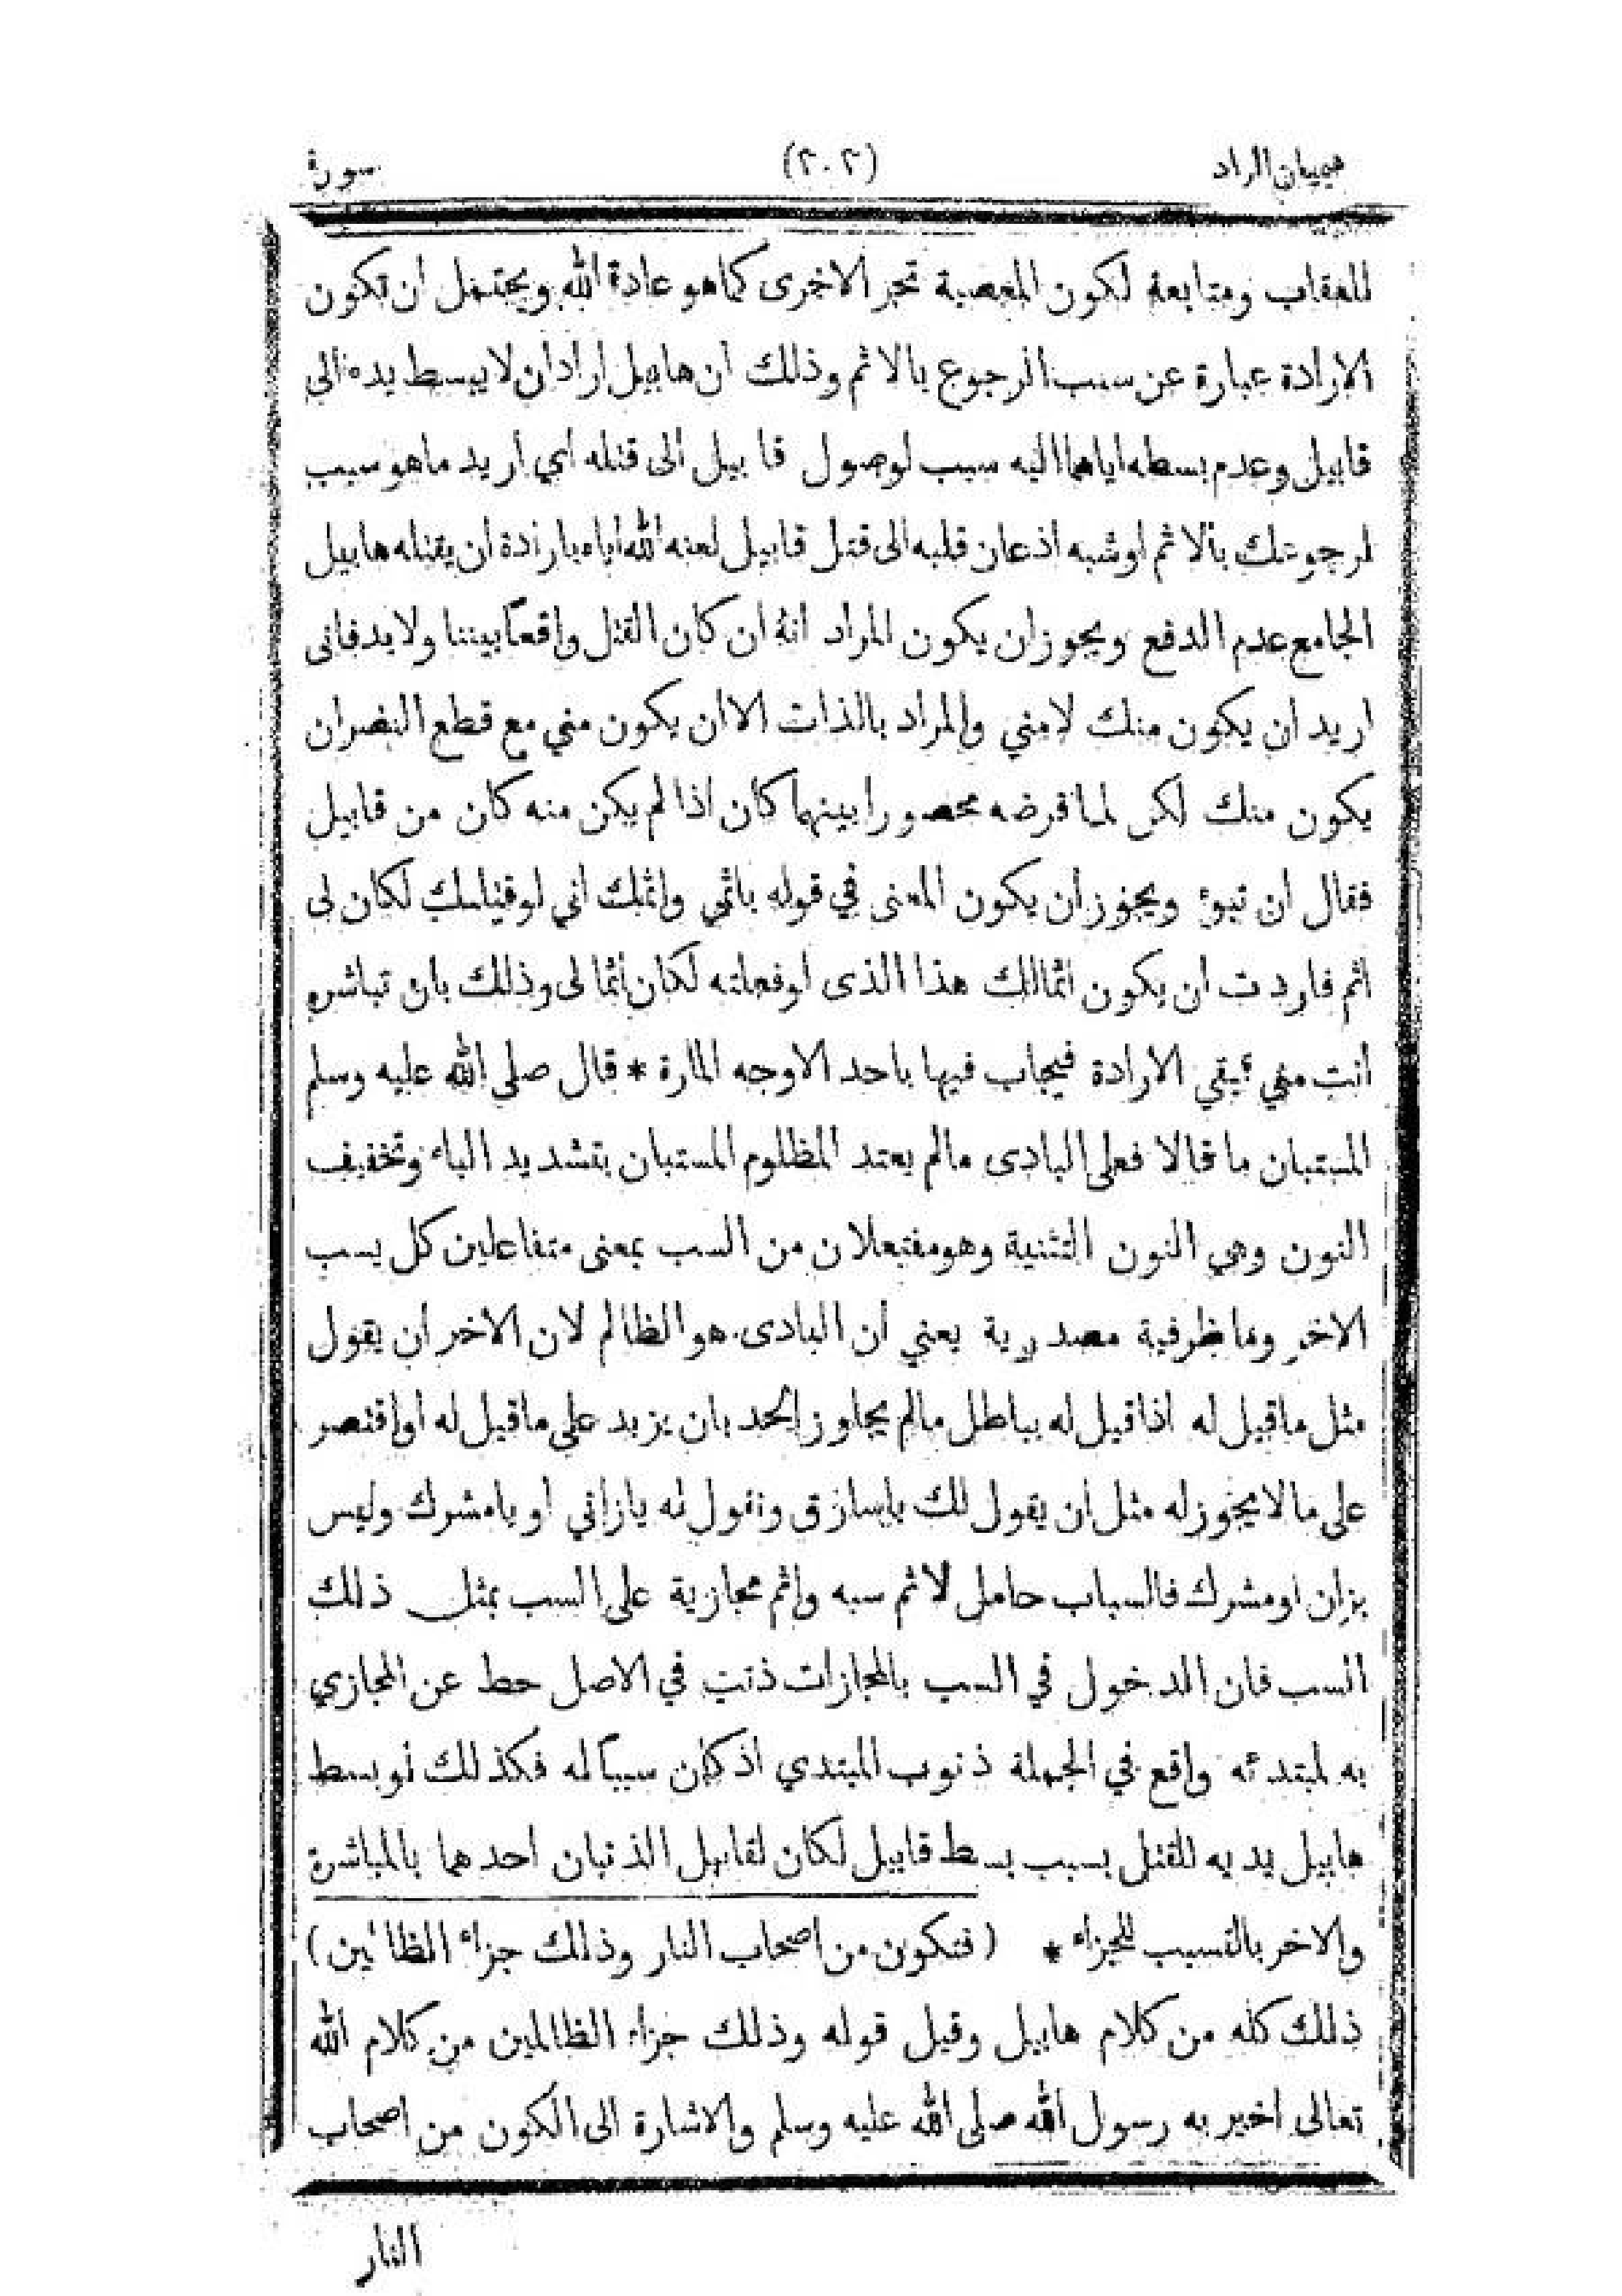 هيميان الزاد (٢٠٢) سورة
للعقاب ومتابعة لكون المعصية تجر الاخرى كما هو عادة الله ويحتمل ان تكون
الارادة عبارة عن سبب الرجوع بالاثم وذلك ان هابيل اراد ان لا يبسط يده الى
قابيل وعدم بسطه اياها اليه سبب لوصول قابيل الى قتله اي اريد ما هو سبب
لرجوعك بالاثم او شبه اذعان قلبه الى قتل قابيل لعنه الله اياه بارادة ان يقتله هابيل
الجامع عدم الدفع ويجوز ان يكون المراد انه ان كان القتل واقعاً بيننا ولا بد فانى
اريد ان يكون منك لا مني والمراد بالذات الا ان يكون مني مع قطع النضران
يكون منك لكن لما فرضه محصورا بينهما كان اذا لم يكن منه كان من قابيل
فقال ان تبوؤ ويجوز ان يكون المعنى في قوله باثمي واثمك اني لو قتلتك لكان لى
اثم فاردت ان يكون اثما لك هذا الذى لو فعلته لكان اثما لى وذلك بان تباشره
أنت مني تبقي الارادة فيجاب فيها باحد الاوجه المارة * قال صلى الله عليه وسلم
المستبان ما قالا فعلى البادى مالم يعتد المظلوم المستبان بتشديد الباء وتخفيف
النون وهي النون التثنية وهو مفتعلان من السب بمعنى متفاعلين كل يسب
الاخر وما ظرفية مصدرية يعني ان البادى هو الظالم لان الاخر ان يقول
مثل ما قيل له اذا قيل له بباطل مالم يجاوز الحد بان يزيد على ما قيل له او اقتصر
على ما لا يجوز له مثل ان يقول لك يا سارق وتقول له يا زاني او يا مشرك وليس
بزان او مشرك فالسباب حامل لاثم سبه واثم مجازية على السب بمثل ذلك
السب فان الدخول في السب بالمجازات ذنب في الاصل حط عن المجازي
به لمبتدئه واقع في الجملة ذنوب المبتدي اذ كان سبباً له فكذلك لو بسط
هابيل يديه للقتل بسبب بسط قابيل لكان لقابيل الذنبان احدهما بالمباشرة
والاخر بالتسبب للجزاء * (فتكون من اصحاب النار وذلك جزاء الظالمين)
ذلك كله من كلام هابيل وقيل قوله وذلك جزاء الظالمين من كلام الله
تعالى اخبر به رسول الله صلى الله عليه وسلم والاشارة الى الكون من اصحاب
النار